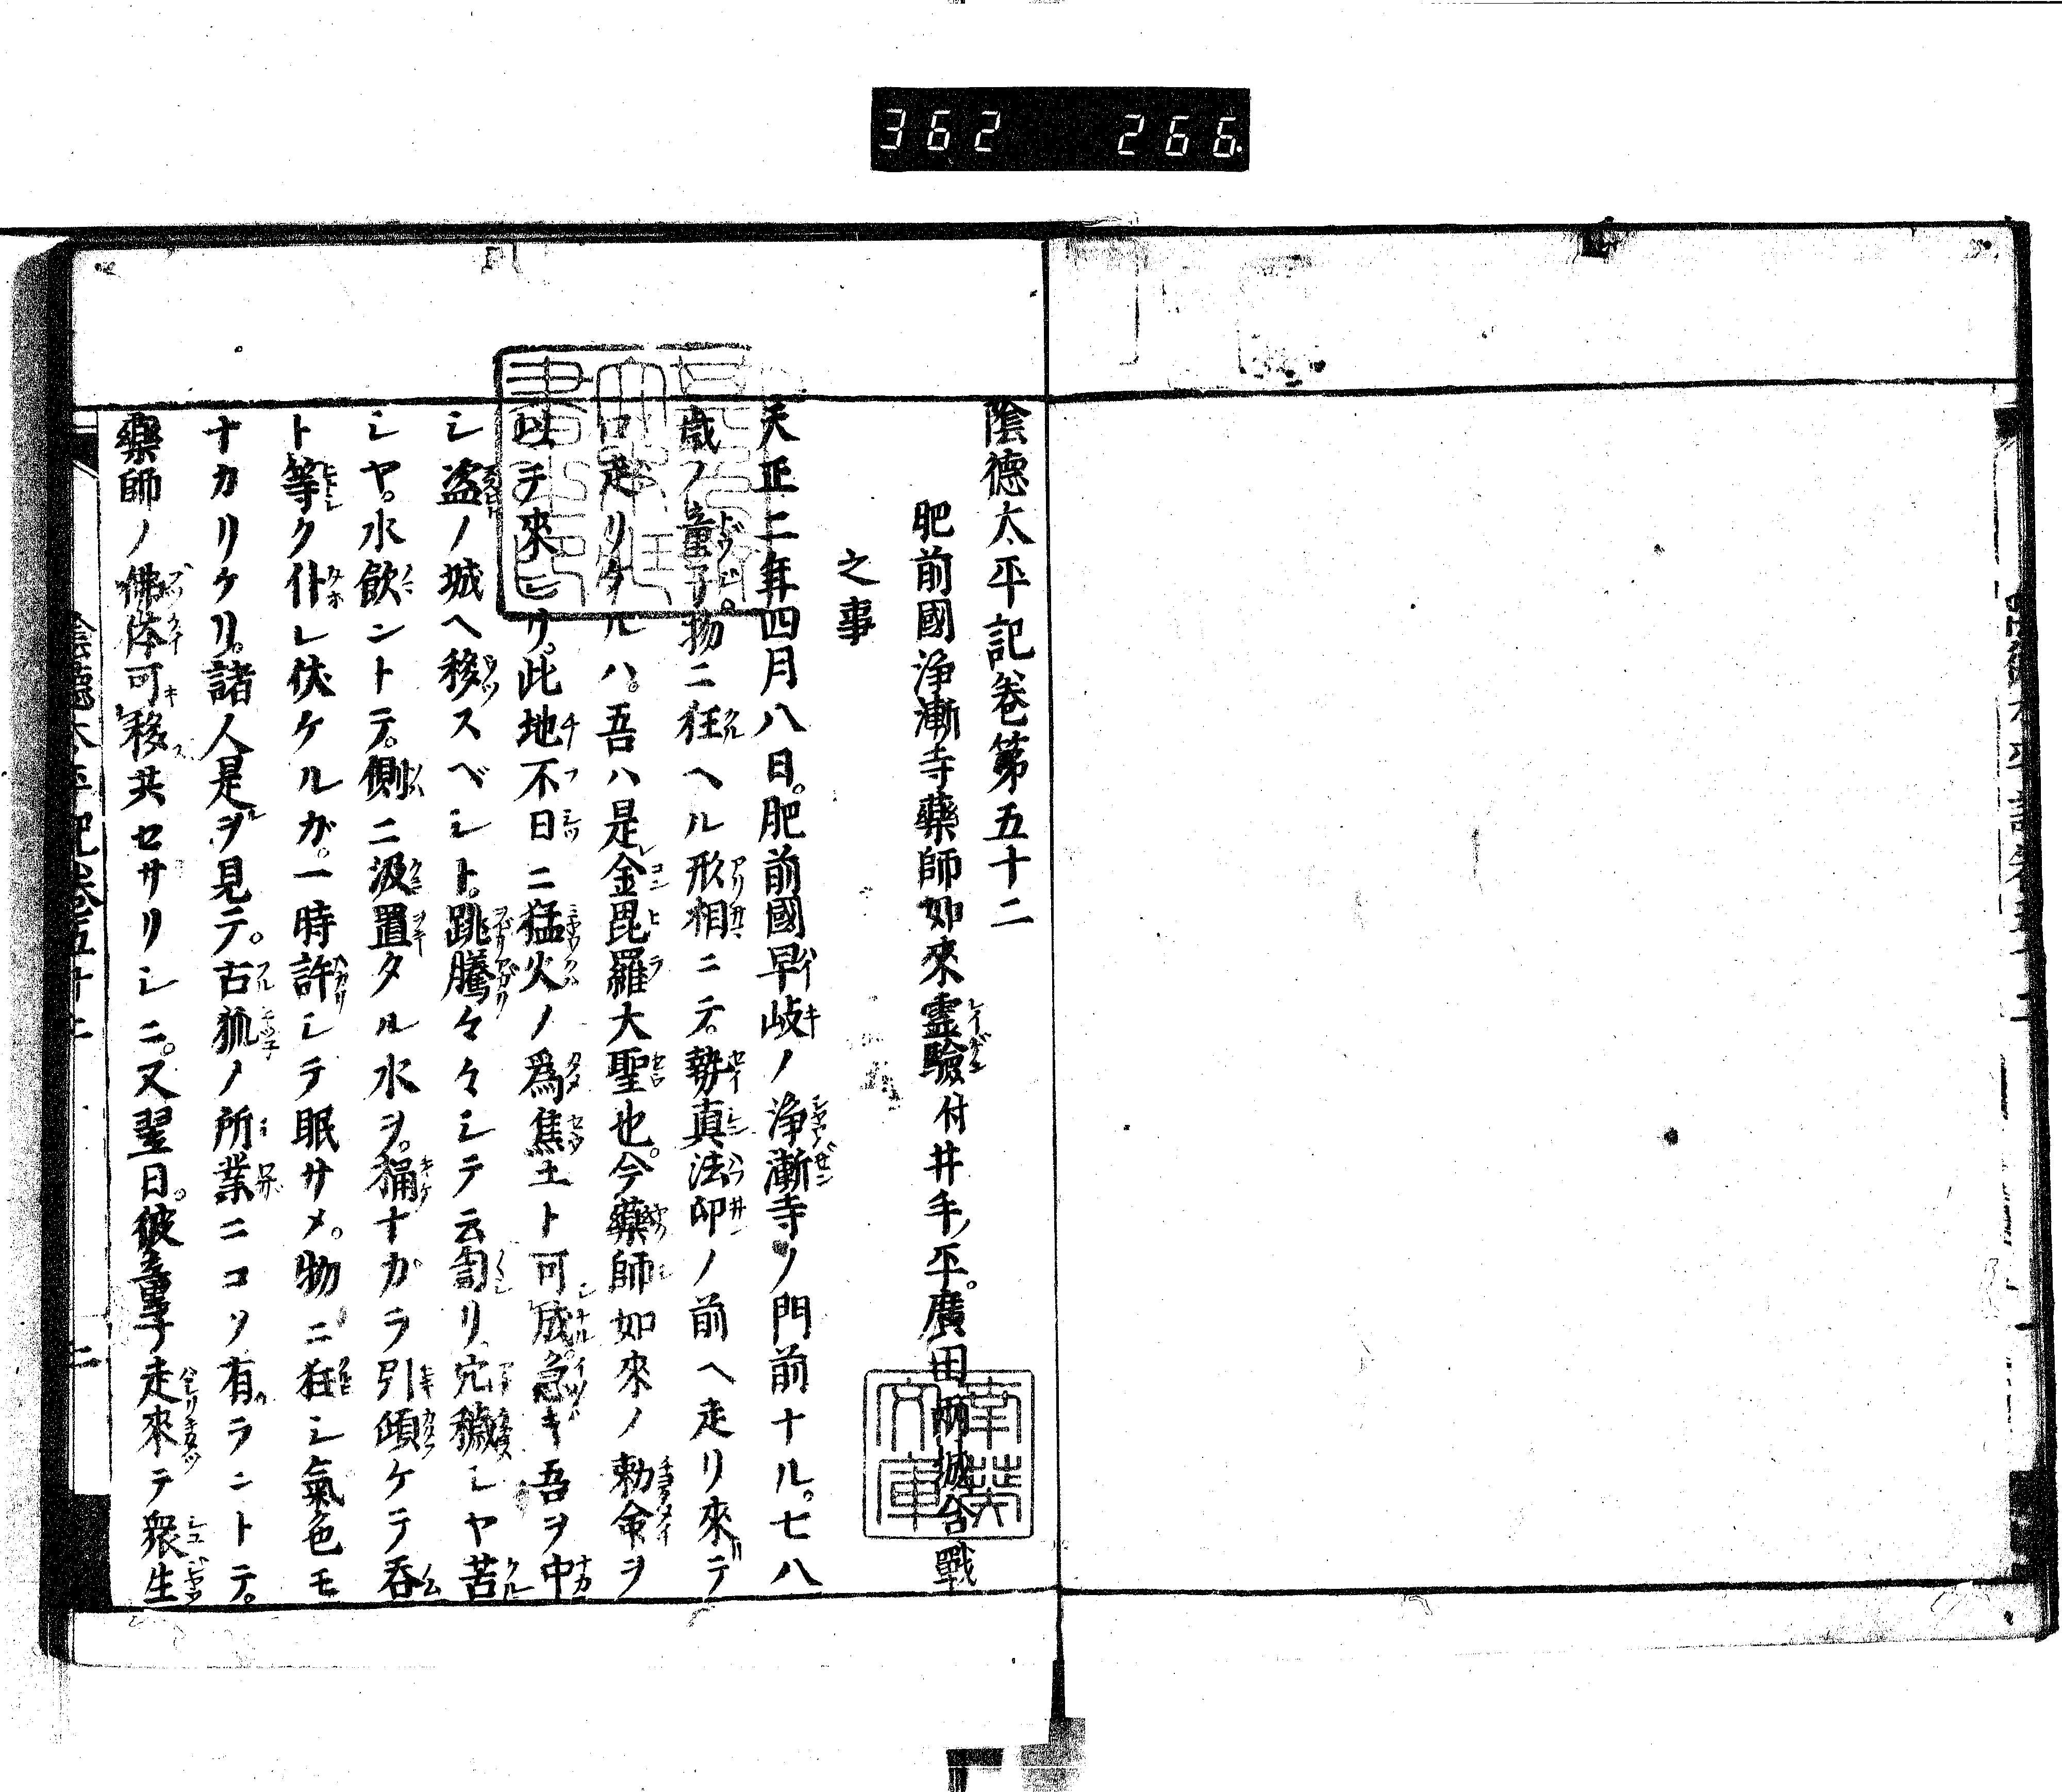 362 266
陰德太平記卷第五十二
肥前國浄漸寺藥師如來霊驗付井手平。廣田兩城合戰
之事
天正二年四月八日。肥前國早岐ノ浄漸寺ノ門前ナル。七八
歳ノ童子。物ニ狂ヘル形相ニテ。勢真法印ノ前ヘ走リ來テ
口走リタルハ。吾ハ是金毘羅大聖也。今藥師如來ノ勅命ヲ
以テ來レリ。此地不日ニ猛火ノ爲焦土ト可成。急キ吾ヲ中
シ盗ノ城ヘ移スベシト。跳騰々々シテ云訇リ。穴穢シヤ苦
シヤ。水飲ントテ。側ニ汲置タル水ヲ。桶ナカラ引傾ケテ呑
ト等ク仆レ伏ケルガ。一時許シテ眠サメ。物ニ狂シ氣色モ
ナカリケリ。諸人是ヲ見テ。古狐ノ所業ニコソ有ラントテ。
藥師ノ佛体可移共セサリシニ。又翌日。彼童子走來テ衆生
陰德太平記卷五十二 二